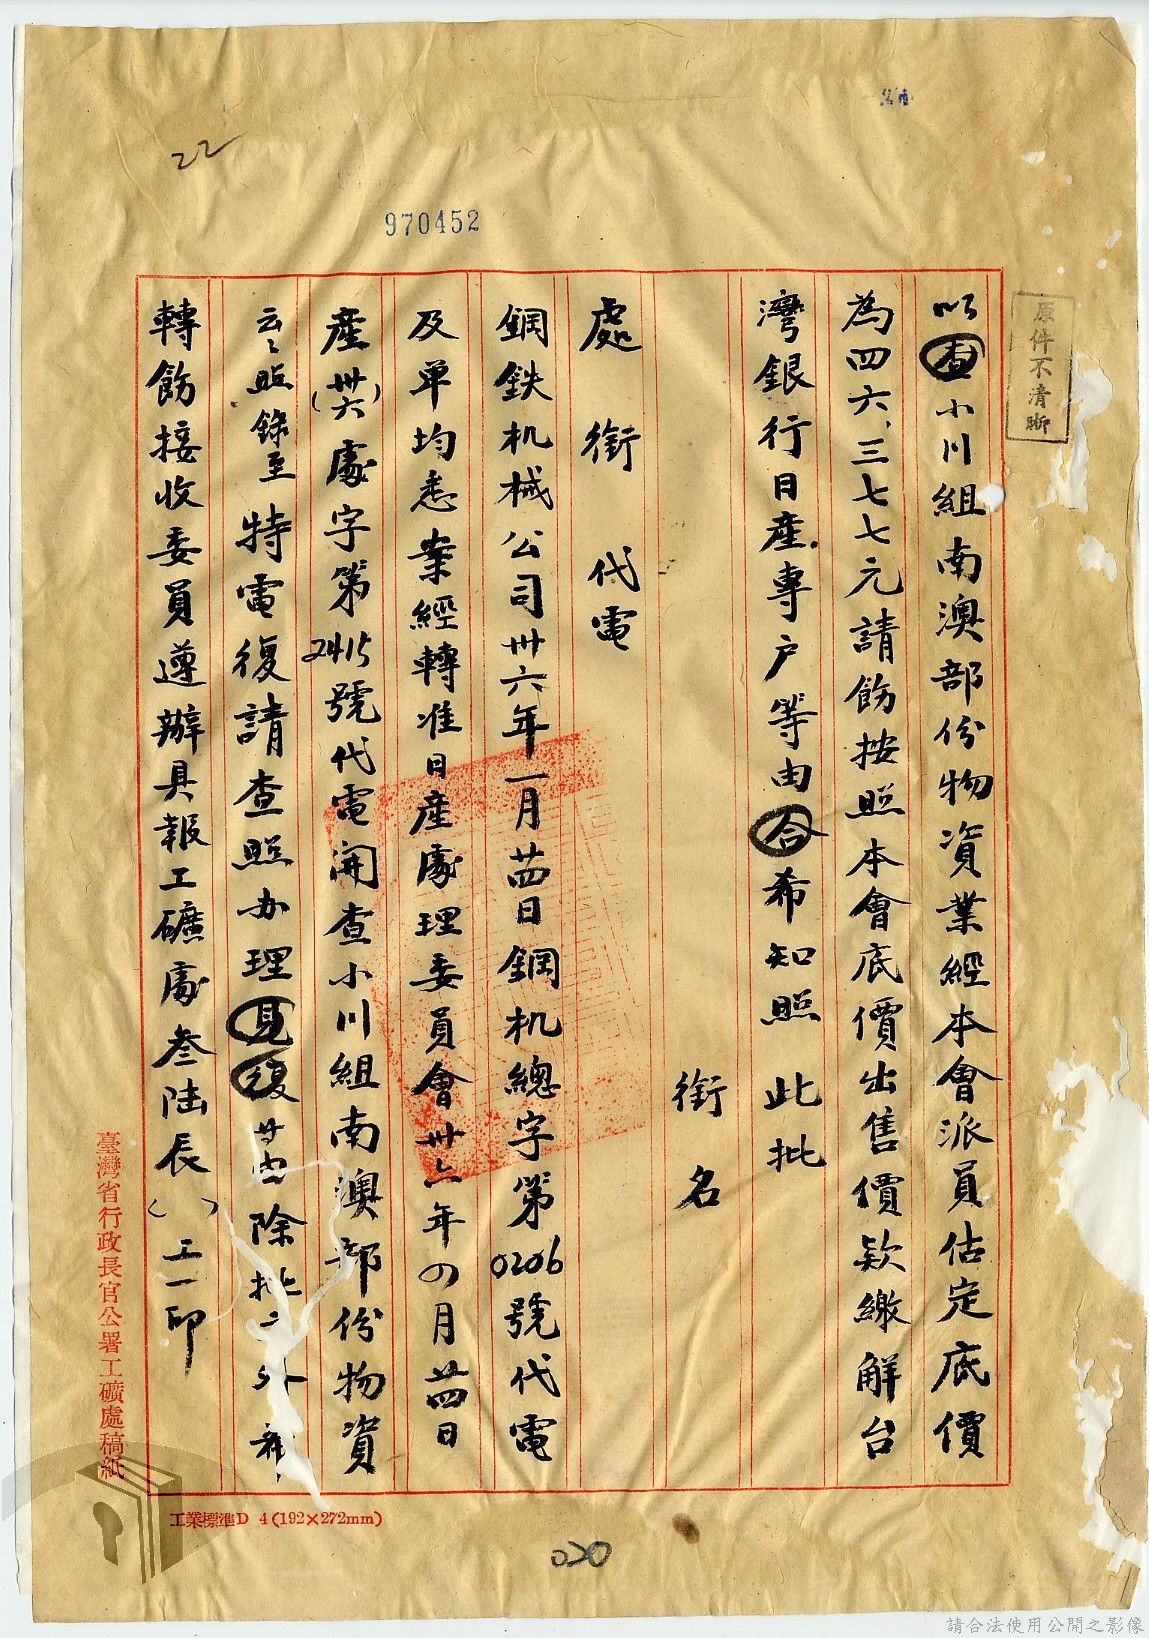 22
970452
原件不清晰
以查小川組南澳部份物資業經本會派員估定底價
為四六、三七七元請飭按照本會底價出售價款繳解台
灣銀行日產專户等由合希知照 此批
銜 名
處 銜 代電
鋼鉄机械公司卅六年一月廿四日鋼机總字第0206號代電
及单均悉案經轉准日產處理委員會卅六年四月廿四日
產(卅六)處字第2415號代電開查小川組南澳部份物資
云云照錄至特電復請查照办理見復 除批 外
轉飭接收委員遵辦具報工礦處叁陸辰( )工一印
臺灣省行政長官公署工礦處稿紙
工業標準D 4(192×272mm)
020
請合法使用公開之影像